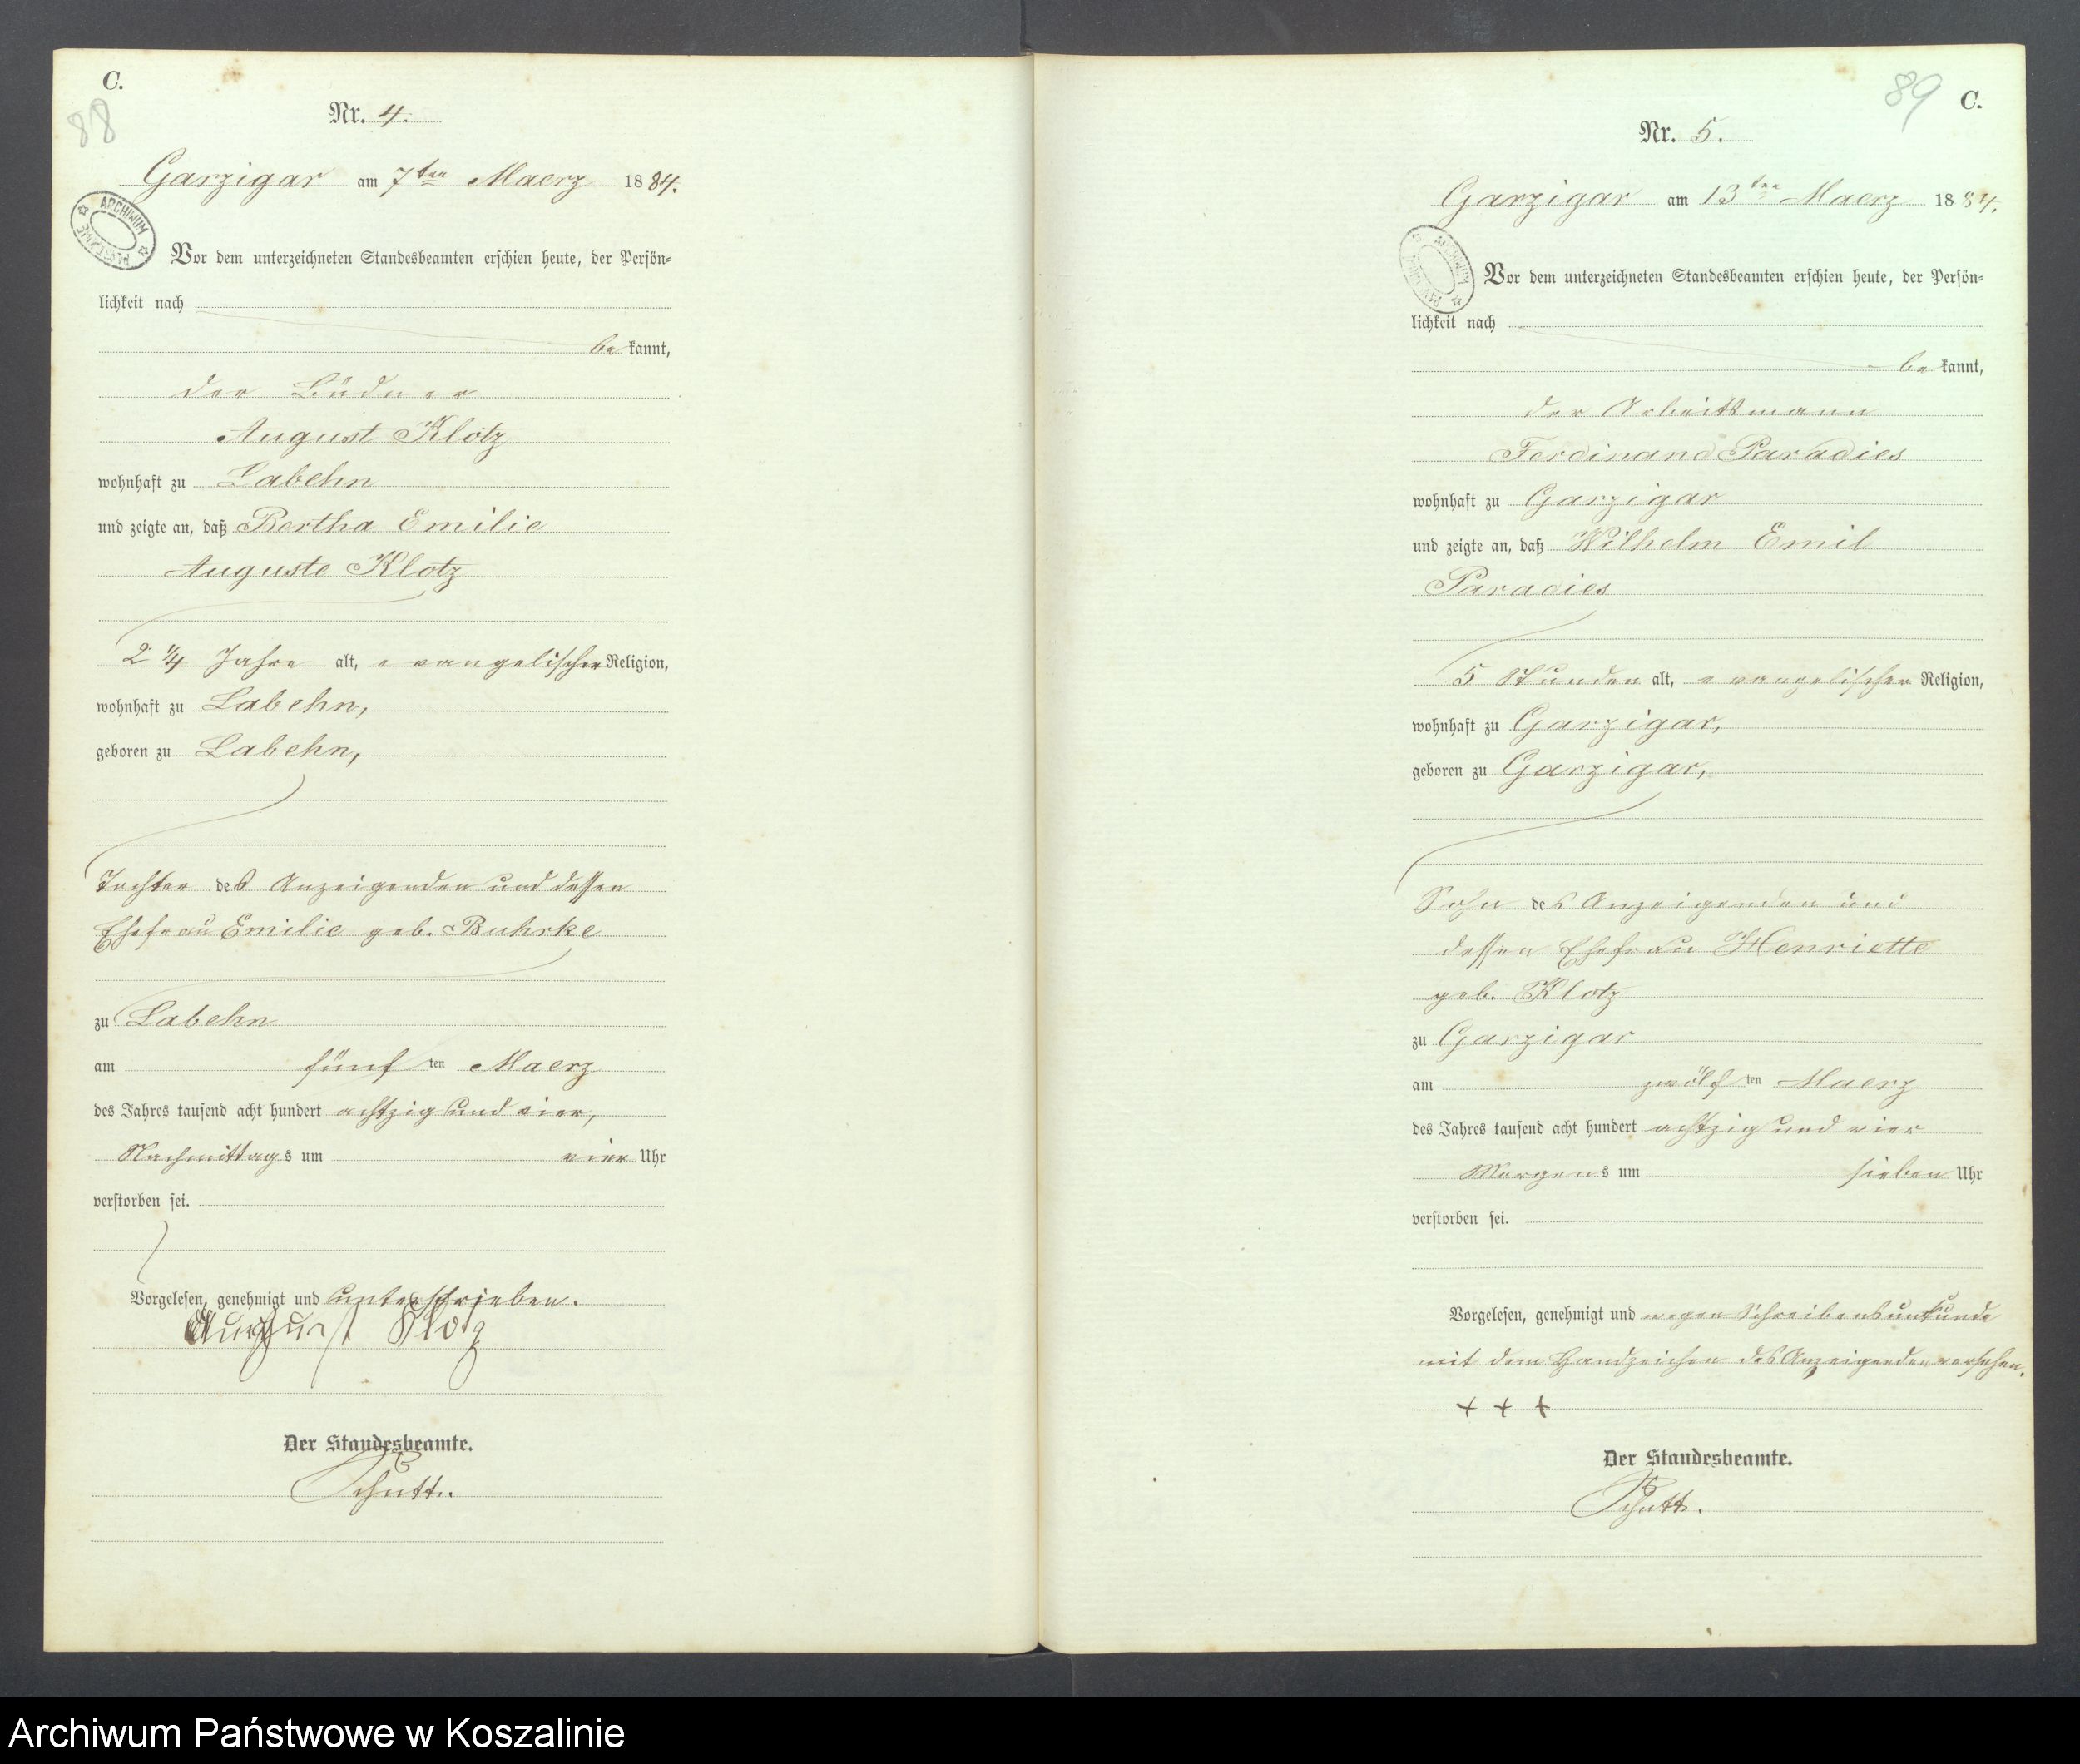 C.
88
Nr. 4.
Garzigar am 7ten Maerz 1884.
ARCHIWUM
Vor dem unterzeichneten Standesbeamten erschien heute, der Persön-
lichkeit nach
bekannt,
der Büdner
August Klotz
wohnhaft zu Labehn
und zeigte an, daß Bertha Emilie
Auguste Klotz
2 1/4 Jahre alt, evangelischer Religion,
wohnhaft zu Labehn,
geboren zu Labehn,
Tochter des Anzeigenden und dessen
Ehefrau Emilie geb. Buhrke
zu Labehn
am fünften Maerz
des Jahres tausend acht hundert achtzig und vier,
Nachmittags um vier Uhr
verstorben sei.
Vorgelesen, genehmigt und unterschrieben.
August Klotz
Der Standesbeamte.
Schutt.
89
C.
Nr. 5.
Garzigar am 13ten Maerz 1884.
ARCHIWUM
Vor dem unterzeichneten Standesbeamten erschien heute, der Persön-
lichkeit nach
bekannt,
der Arbeitsmann
Ferdinand Paradies
wohnhaft zu Garzigar
und zeigte an, daß Wilhelm Emil
Paradies
5 Stunden alt, evangelischer Religion,
wohnhaft zu Garzigar,
geboren zu Garzigar,
Sohn des Anzeigenden und
dessen Ehefrau Henriette
geb. Klotz
zu Garzigar
am zwölften Maerz
des Jahres tausend acht hundert achtzig und vier
Morgens um sieben Uhr
verstorben sei.
Vorgelesen, genehmigt und wegen Schreibensunkunde
mit dem Handzeichen des Anzeigenden versehen.
+ + +
Der Standesbeamte.
Schutt.
Archiwum Państwowe w Koszalinie